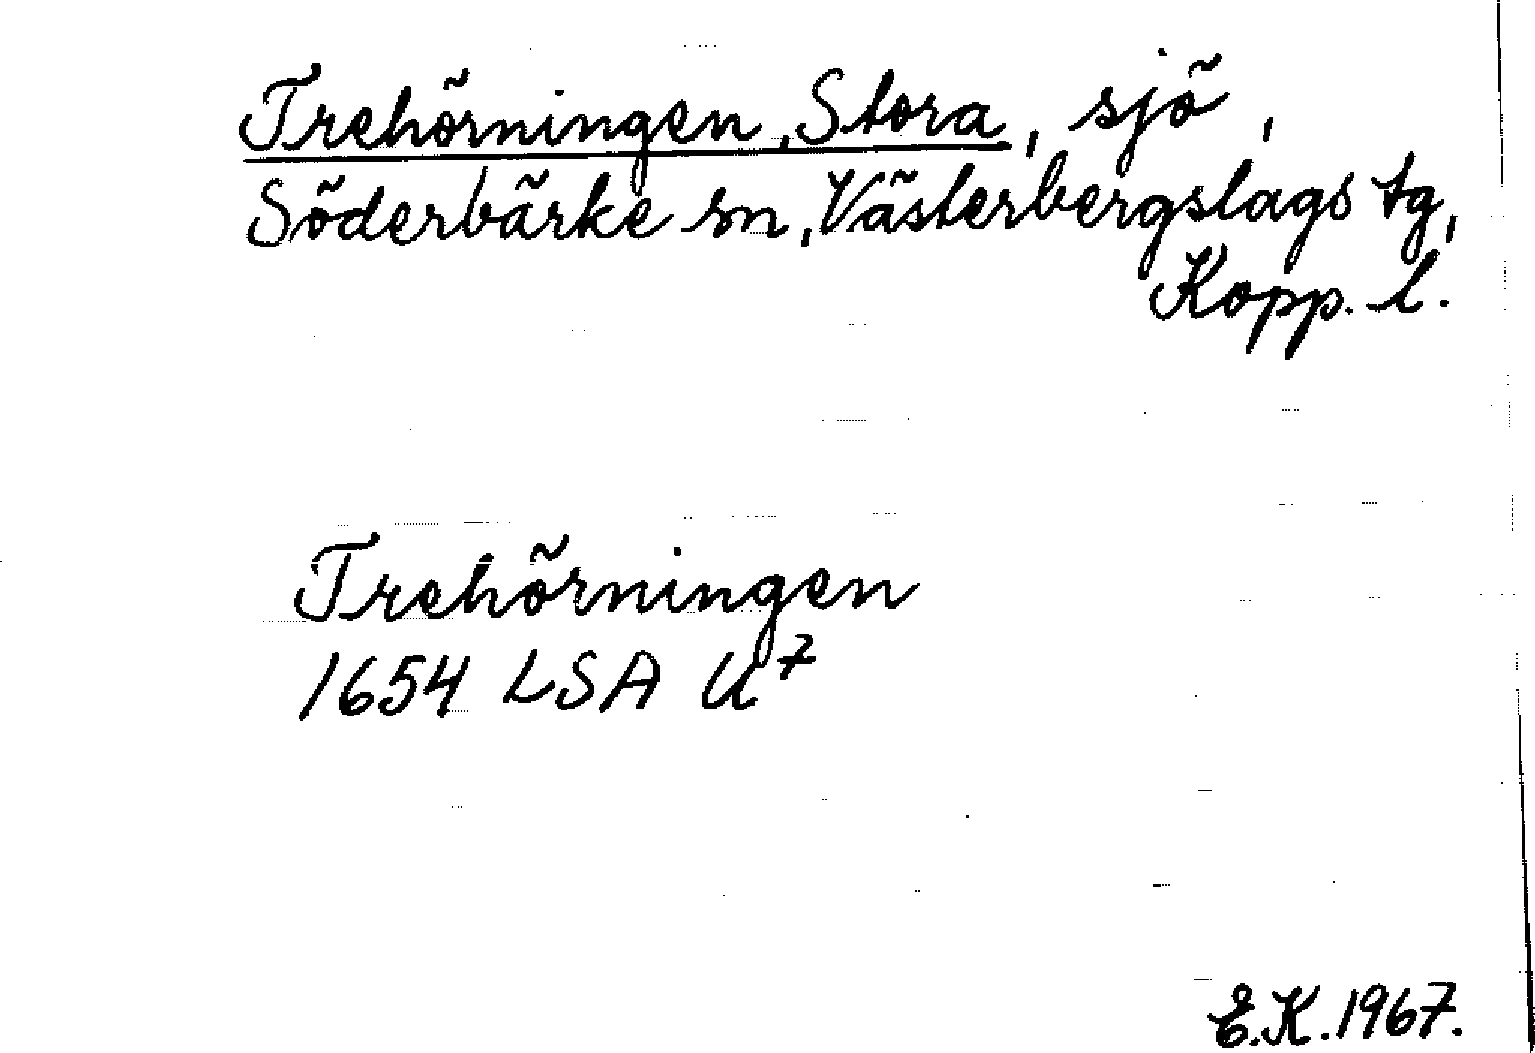 Trehörningen, Stora, sjö,
Söderbärke sn, Västerbergslags tg,
Kopp. l.
Trehörningen
1654 LSA U⁷
E.K. 1967.